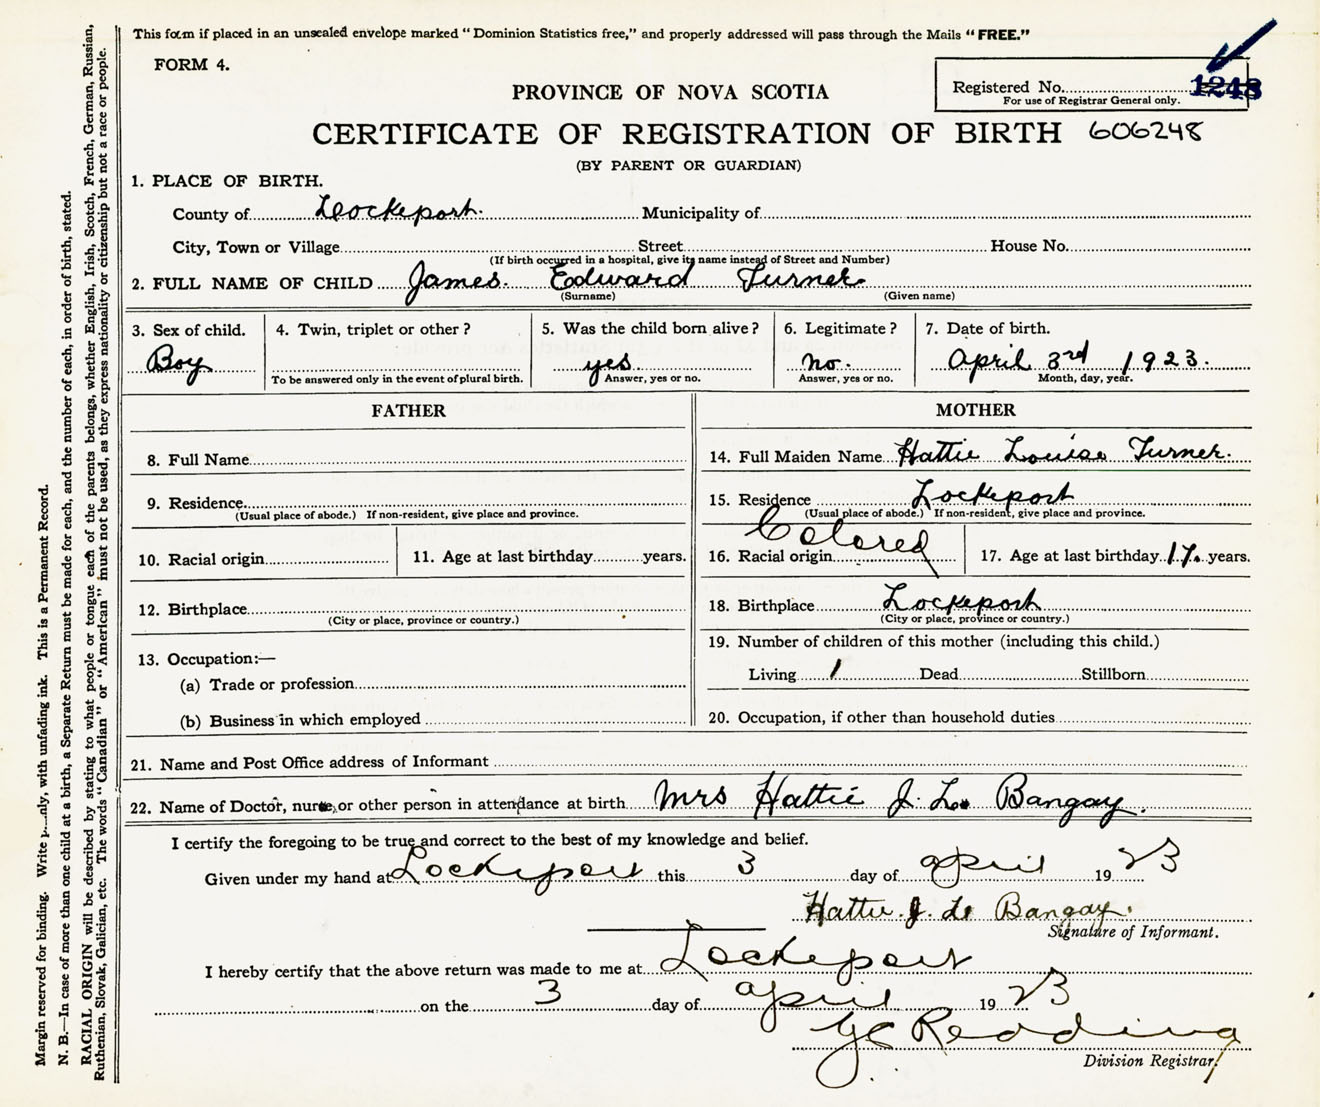 This form if placed in an unsealed envelope marked "Dominion Statistics free," and properly addressed will pass through the Mails "FREE."
FORM 4.
Registered No. 1248
For use of Registrar General only.
PROVINCE OF NOVA SCOTIA
CERTIFICATE OF REGISTRATION OF BIRTH 606248
(BY PARENT OR GUARDIAN)
1. PLACE OF BIRTH.
County of Lockeport. Municipality of
City, Town or Village Street House No.
(If birth occurred in a hospital, give its name instead of Street and Number)
2. FULL NAME OF CHILD James. Edward Turner
(Surname) (Given name)
3. Sex of child. 4. Twin, triplet or other? 5. Was the child born alive? 6. Legitimate? 7. Date of birth.
Boy yes no. April 3rd 1923.
To be answered only in the event of plural birth. Answer, yes or no. Answer, yes or no. Month, day, year.
FATHER
8. Full Name
9. Residence
(Usual place of abode.) If non-resident, give place and province.
10. Racial origin 11. Age at last birthday years.
12. Birthplace
(City or place, province or country.)
13. Occupation:—
(a) Trade or profession
(b) Business in which employed
MOTHER
14. Full Maiden Name Hattie Louise Turner.
15. Residence Lockeport
(Usual place of abode.) If non-resident, give place and province.
16. Racial origin Colored 17. Age at last birthday 17. years.
18. Birthplace Lockeport
(City or place, province or country.)
19. Number of children of this mother (including this child.)
Living 1 Dead Stillborn
20. Occupation, if other than household duties
21. Name and Post Office address of Informant
22. Name of Doctor, nurse, or other person in attendance at birth Mrs Hattie J. Le Bangay.
I certify the foregoing to be true and correct to the best of my knowledge and belief.
Given under my hand at Lockeport this 3 day of april 19 23
Hattie J. Le Bangay.
Signature of Informant.
I hereby certify that the above return was made to me at Lockeport
on the 3 day of april 19 23
Redding
Division Registrar.
Margin reserved for binding. Write with unfading ink. This is a Permanent Record.
N. B.—In case of more than one child at a birth, a Separate Return must be made for each, and the number of each, in order of birth, stated.
RACIAL ORIGIN will be described by stating to what people or tongue each of the parents belongs, whether English, Irish, Scotch, French, German, Russian,
Ruthenian, Slovak, Galician, etc. The words "Canadian" or "American" must not be used, as they express nationality or citizenship but not a race or people.